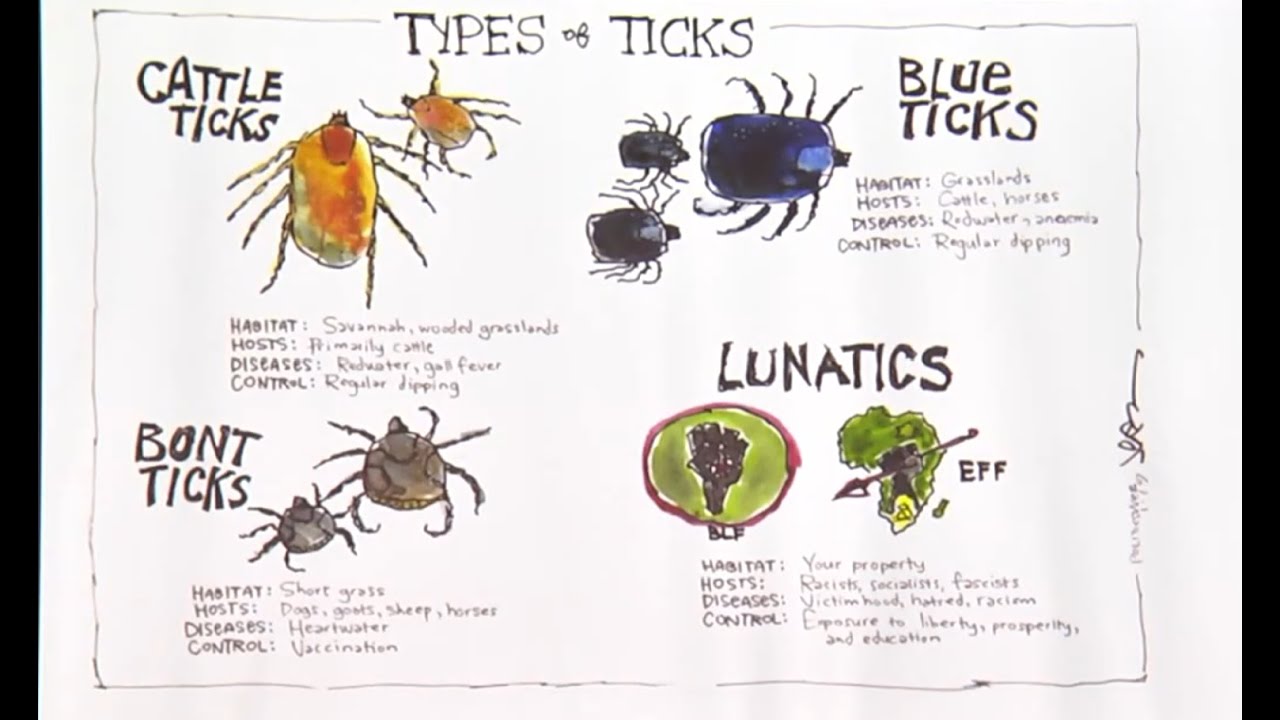 TYPES of TICKS
CATTLE
TICKS
HABITAT: Savannah, wooded grasslands
HOSTS: Primarily cattle
DISEASES: Redwater, gall fever
CONTROL: Regular dipping
BLUe
TICKS
HABITAT: Grasslands
HOSTS: Cattle, horses
DISEASES: Redwater, anaemia
CONTROL: Regular dipping
BONT
TICKS
HABITAT: Short grass
HOSTS: Dogs, goats, sheep, horses
DISEASES: Heartwater
CONTROL: Vaccination
LUNATICS
BLF
EFF
HABITAT: Your property
HOSTS: Racists, socialists, fascists
DISEASES: Victimhood, hatred, racism
CONTROL: Exposure to liberty, prosperity,
and education